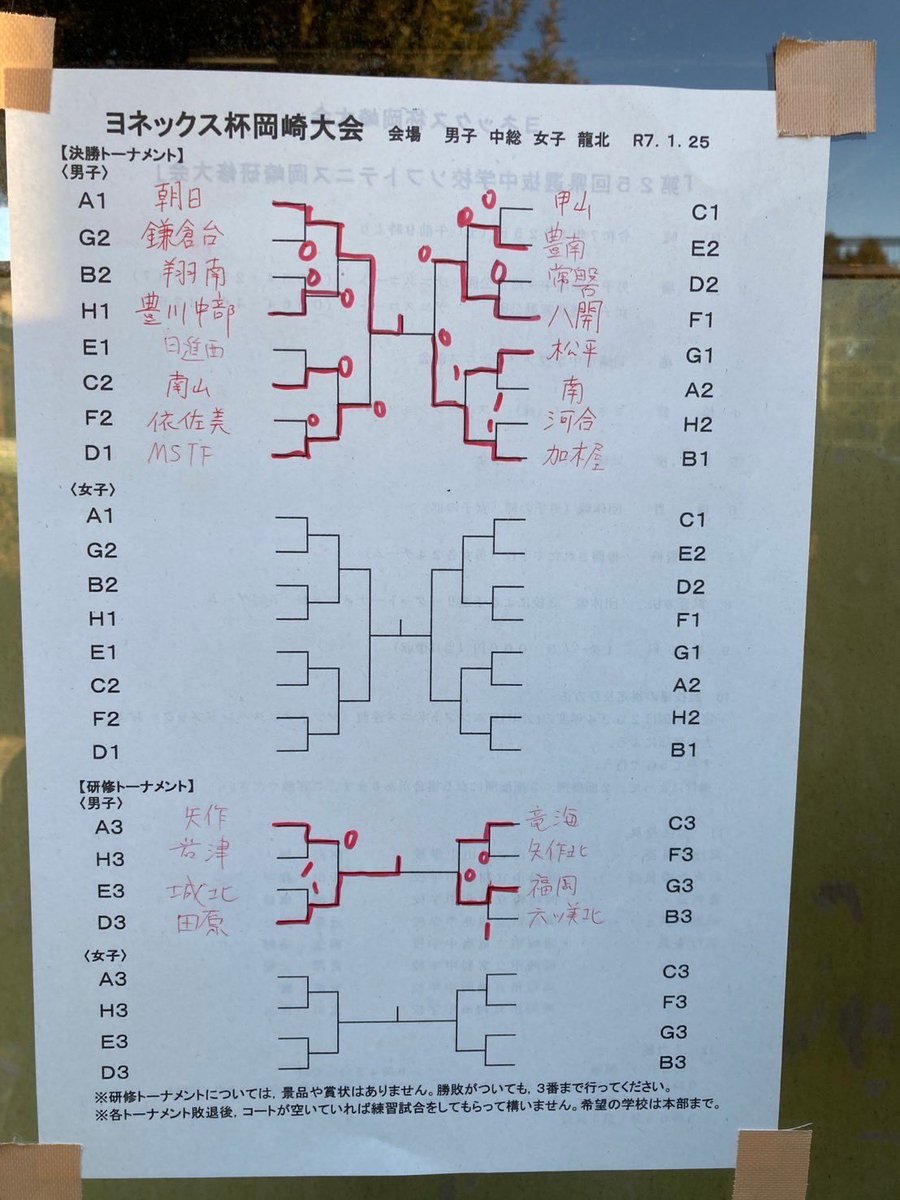 ヨネックス杯岡崎大会 会場 男子 中総 女子 龍北 R7.1.25
【決勝トーナメント】
〈男子〉
A1 朝日 甲山 C1
G2 鎌倉台 豊南 E2
B2 翔南 常磐 D2
H1 豊川中部 八開 F1
E1 日進西 松平 G1
C2 南山 南 A2
F2 依佐美 河合 H2
D1 MSTF 加木屋 B1
〈女子〉
A1 C1
G2 E2
B2 D2
H1 F1
E1 G1
C2 A2
F2 H2
D1 B1
【研修トーナメント】
〈男子〉
A3 矢作 竜海 C3
H3 岩津 矢作北 F3
E3 城北 福岡 G3
D3 田原 六ッ美北 B3
〈女子〉
A3 C3
H3 F3
E3 G3
D3 B3
※研修トーナメントについては，景品や賞状はありません。勝敗がついても，3番まで行ってください。
※各トーナメント敗退後，コートが空いていれば練習試合をしてもらって構いません。希望の学校は本部まで。